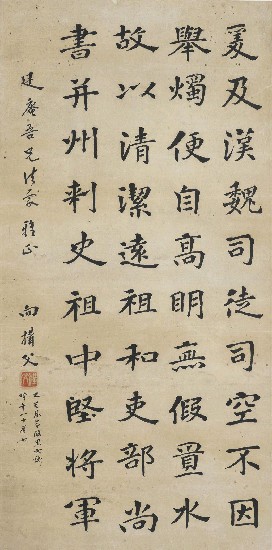 爰及漢魏司徒司空不因
舉燭便自高明無假置水
故以清潔遠祖和吏部尚
書并州刺史祖中堅將軍
建庵吾兄法家 雅正
向 父